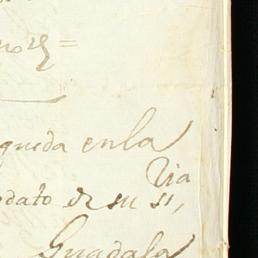 queda en la
Via
dato de su si,
Guadala